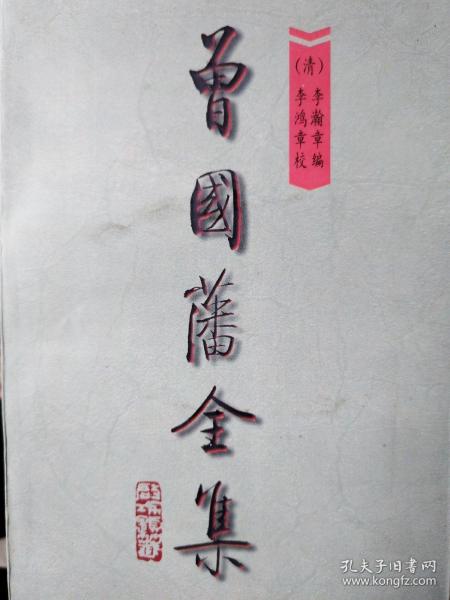 曾國藩全集
(清)
李瀚章编
李鸿章校
孔夫子旧书网
www.kongfz.com